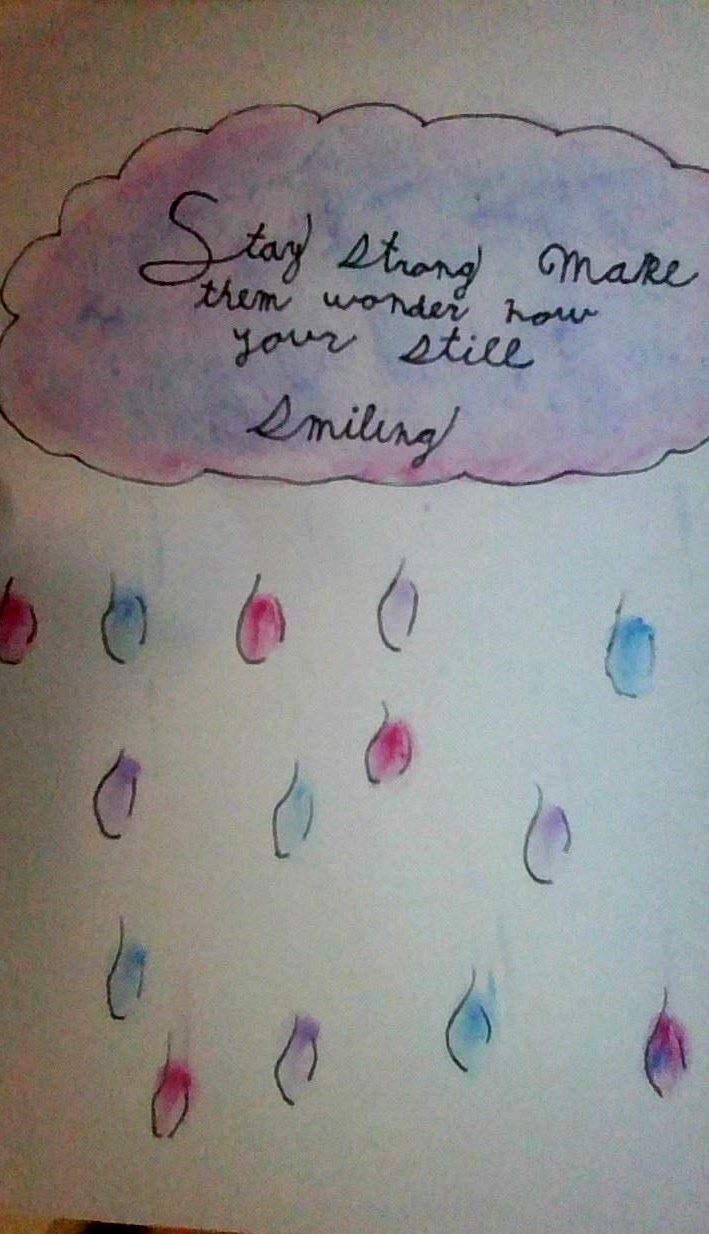 Stay strong Make
them wonder how
your still
smiling